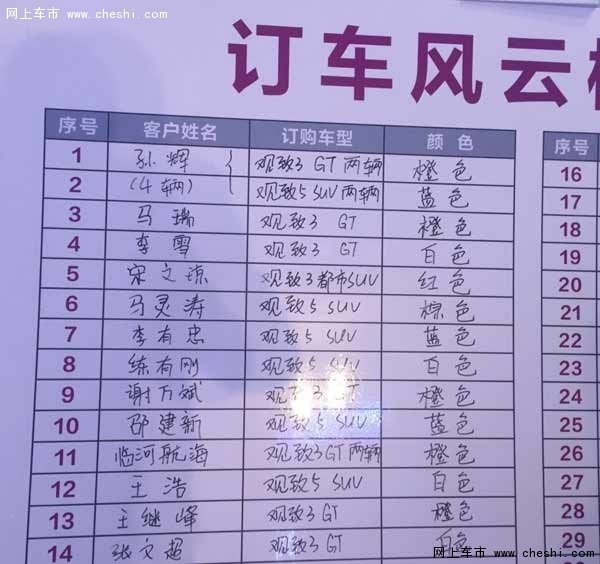 网上车市 www.cheshi.com
订车风云
序号 客户姓名 订购车型 颜色 序号
1 孙辉 观致3 GT 两辆 橙色 16
2 (4辆) 观致5 SUV 两辆 蓝色 17
3 马瑞 观致3 GT 橙色 18
4 李雪 观致3 GT 白色 19
5 宋文琼 观致3都市SUV 红色 20
6 马灵涛 观致5 SUV 棕色 21
7 李有忠 观致5 SUV 蓝色 22
8 练有刚 观致5 SUV 白色 23
9 谢万斌 观致3 GT 橙色 24
10 邵建新 观致5 SUV 蓝色 25
11 临河航海 观致3GT两辆 橙色 26
12 王浩 观致5 SUV 白色 27
13 王继峰 观致3 GT 橙色 28
14 张文超 观致3 GT 白色 29
网上车市 www.cheshi.com